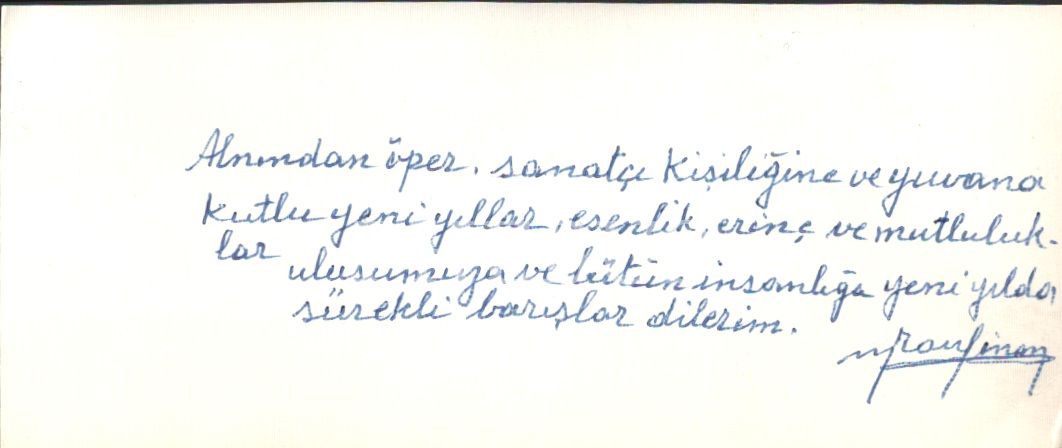 Alnından öper, sanatçı kişiliğine ve yuvana
kutlu yeni yıllar, esenlik, erinç ve mutluluk-
lar
ulusumuza ve bütün insanlığa yeni yılda
sürekli barışlar dilerim.
M Rauf inan